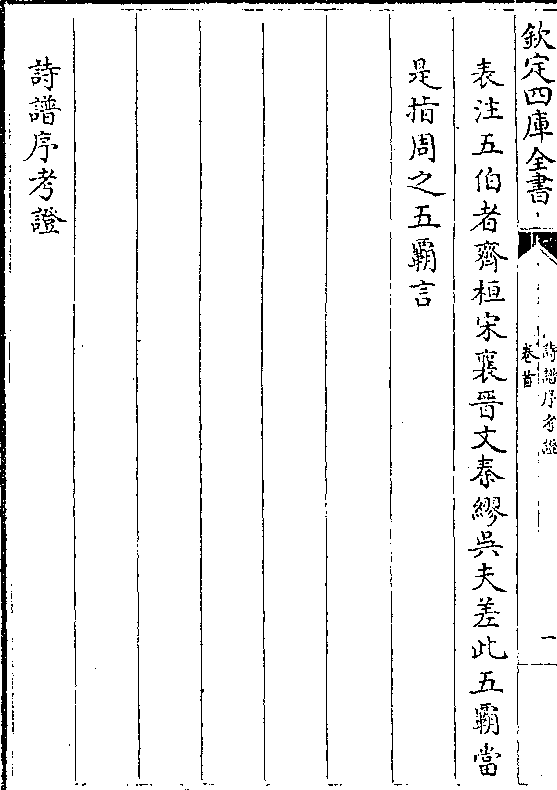 欽定四庫全書
詩譜序考證
卷首
一
表注五伯者齊桓宋襄晉文秦繆吳夫差此五霸當
是指周之五霸言
詩譜序考證